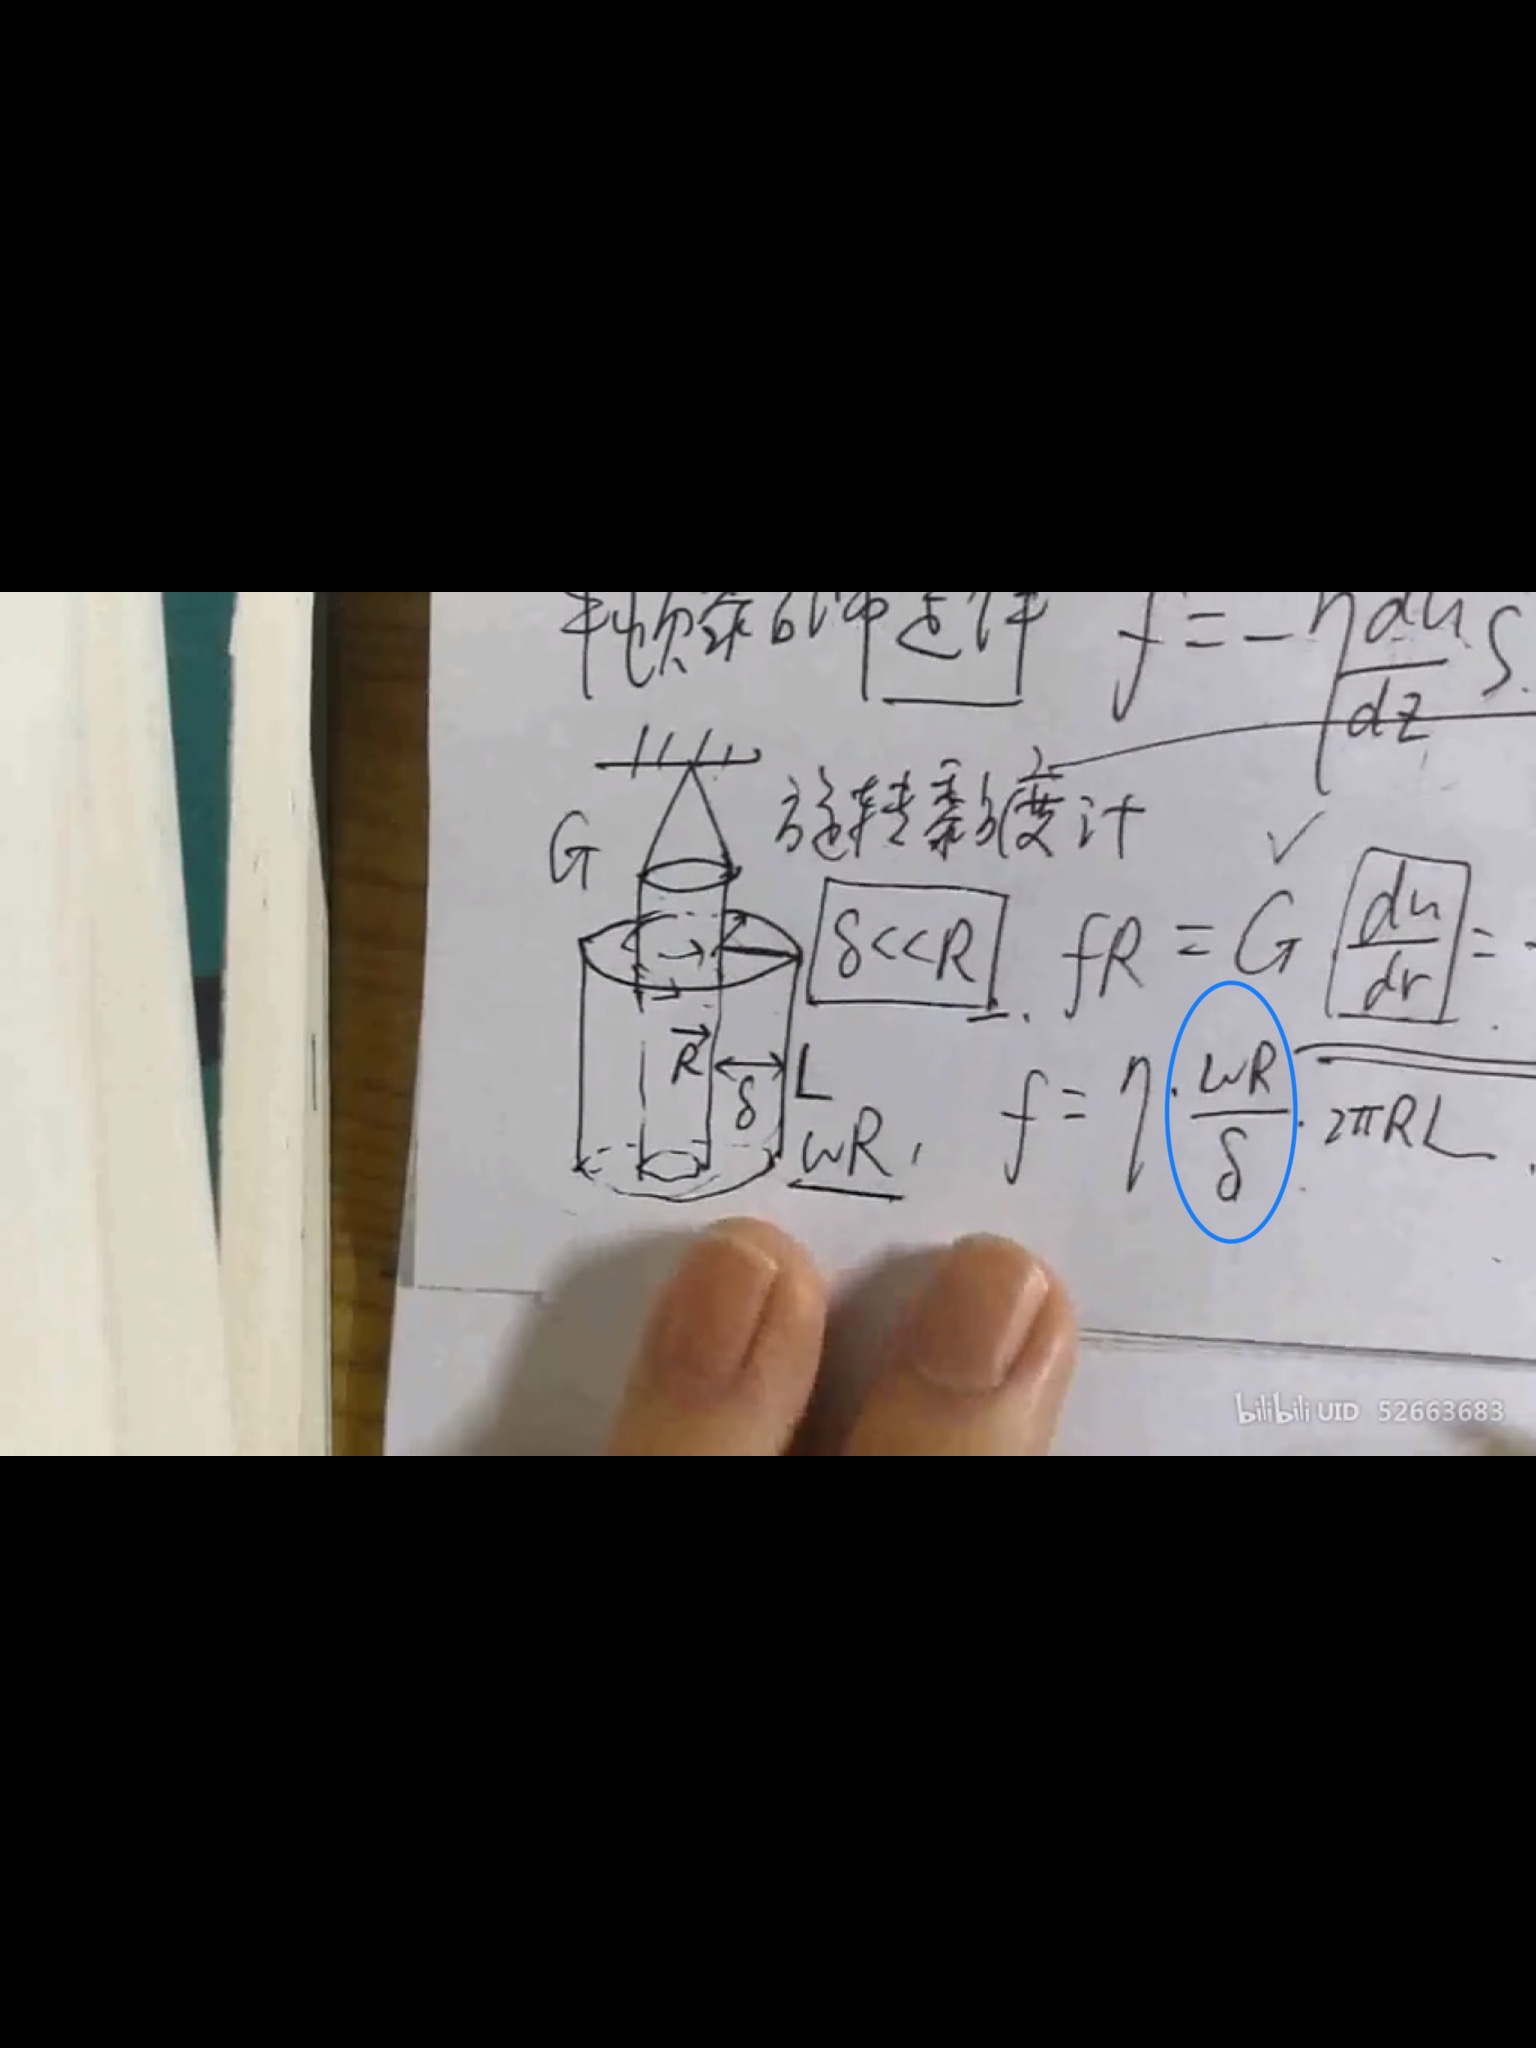 牛顿黏的冲定律 f = -η du/dz S.
旋转黏度计
G
δ<<R
fR = G du/dr =
R δ L
ωR,
f = η · ωR/δ · 2πRL
bilibili UID 52663683